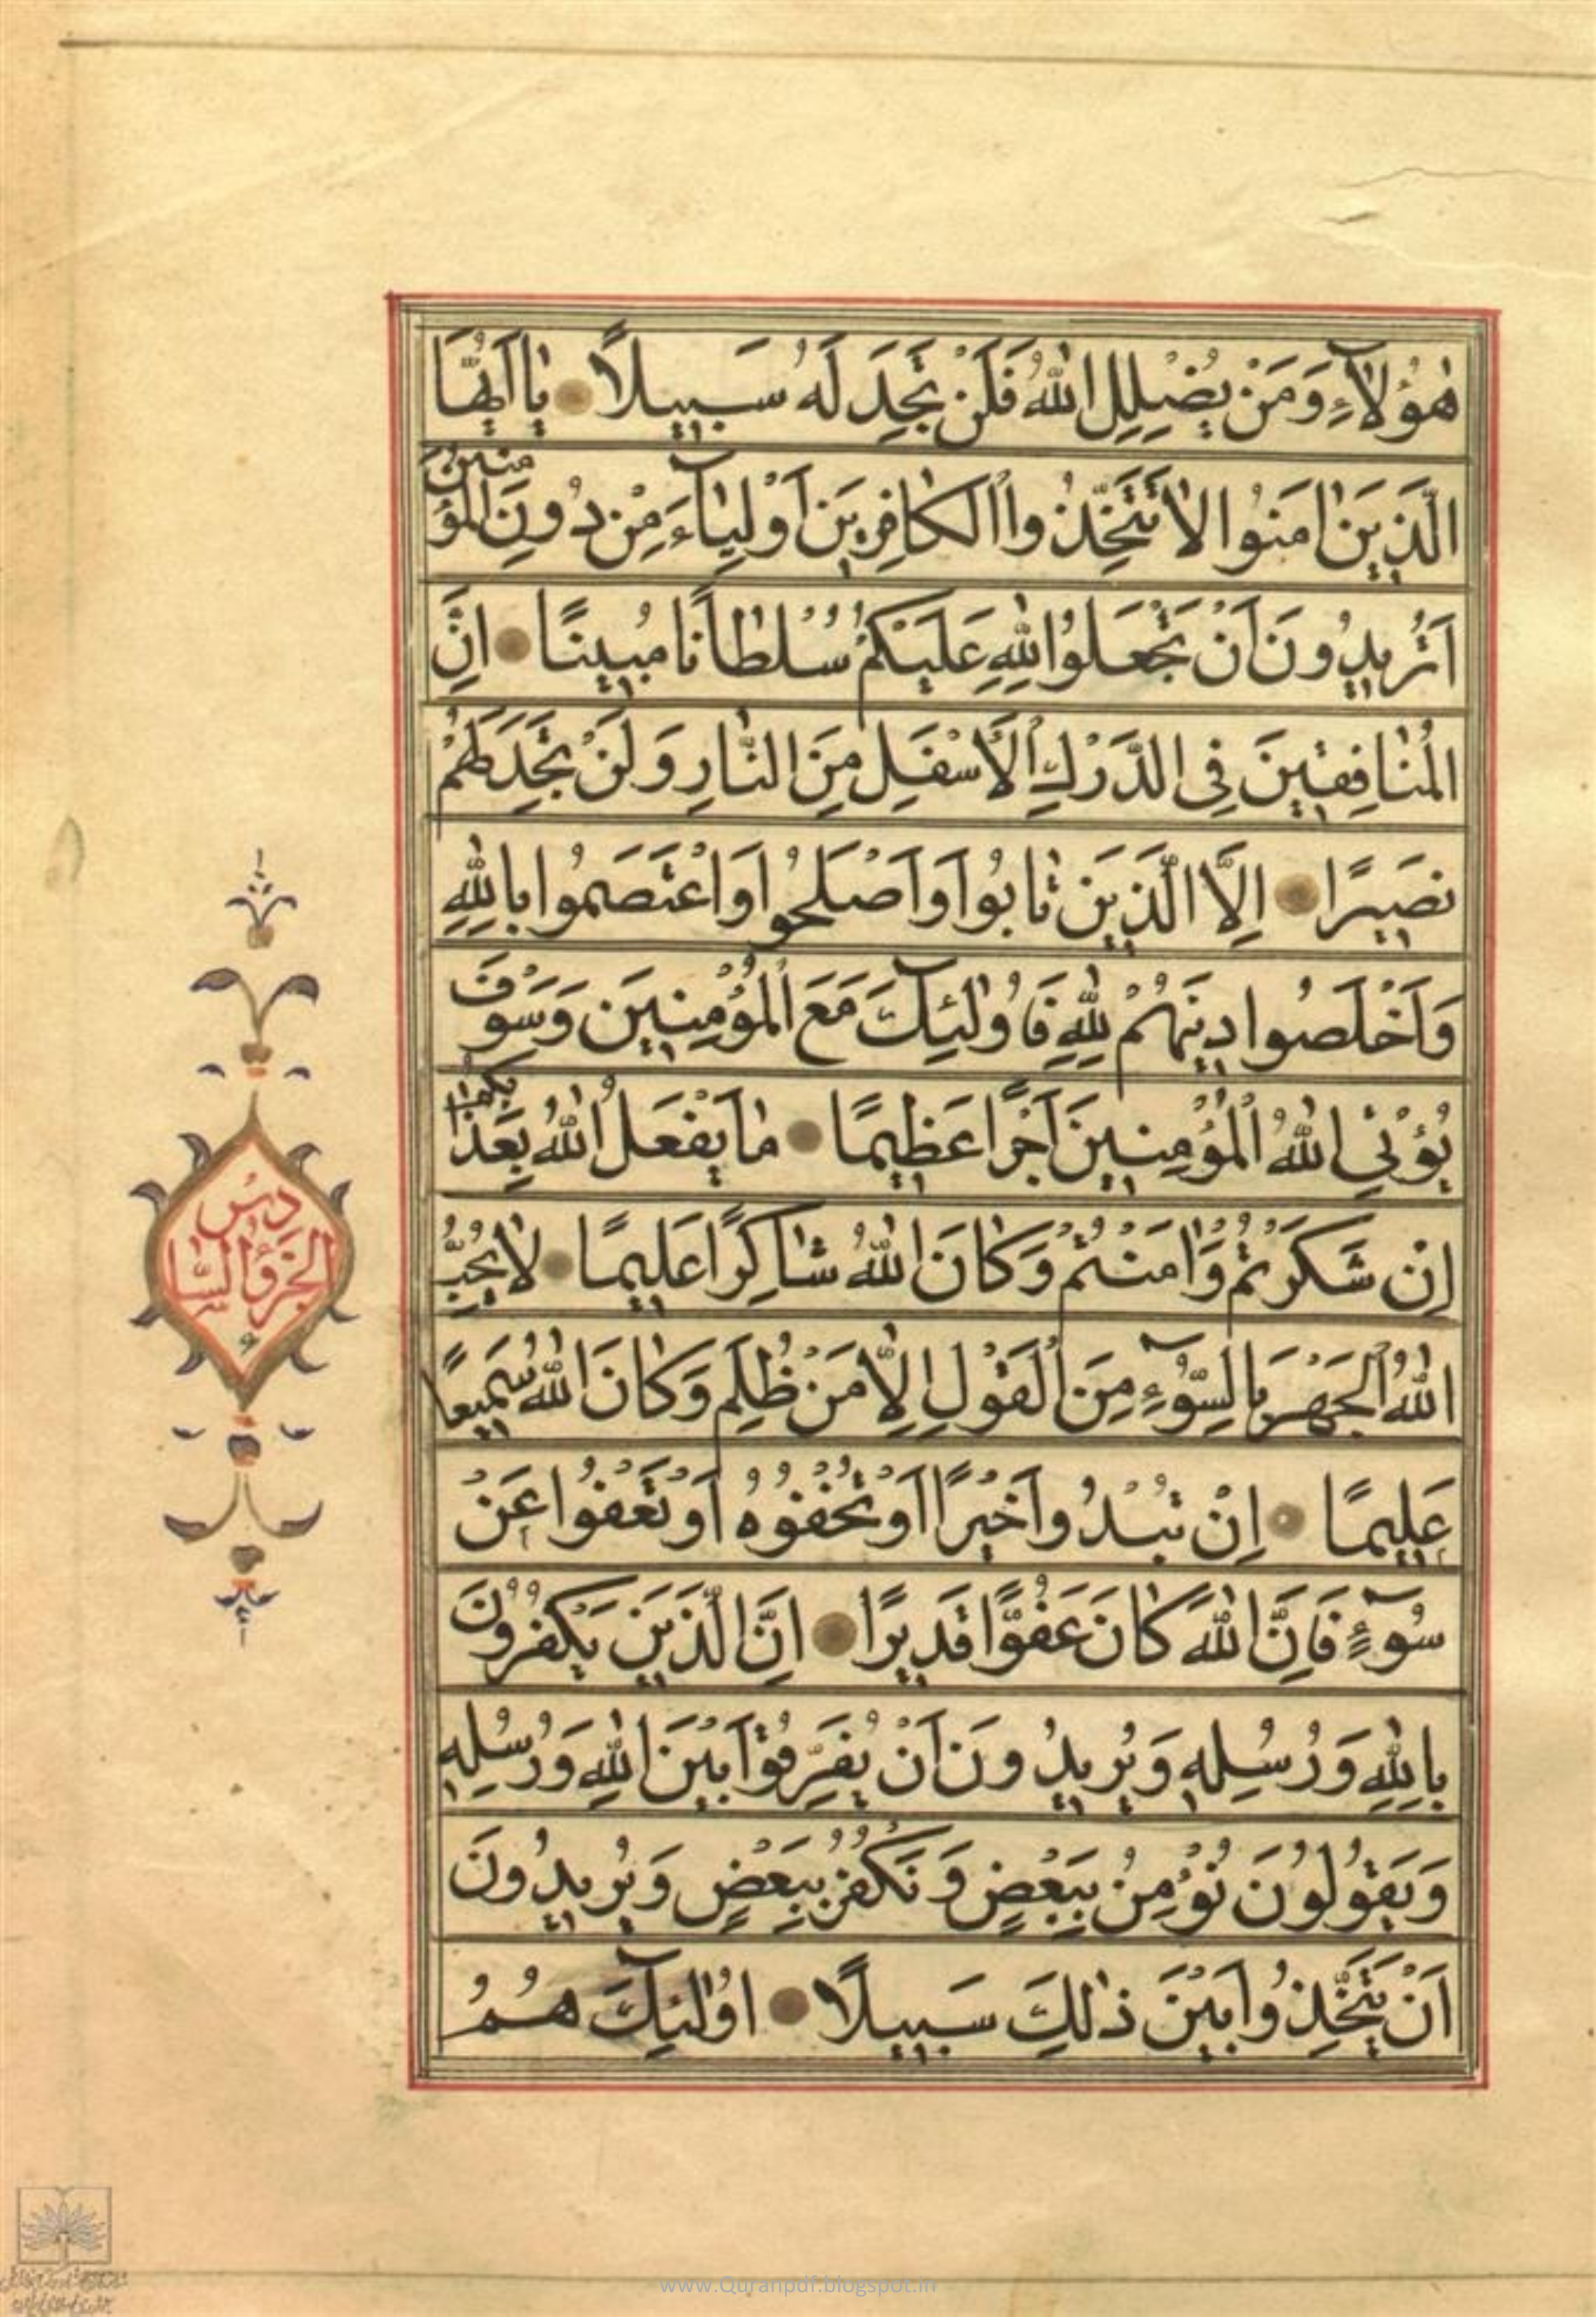 هٰؤُلَآءِ وَمَنْ يُضْلِلِ اللّٰهُ فَلَنْ تَجِدَ لَهُ سَبِيلًا يٰٓا اَيُّهَا
الَّذِينَ اٰمَنُوا لَا تَتَّخِذُوا الْكَافِرِينَ اَوْلِيَآءَ مِنْ دُونِ الْمُؤْمِنِينَ
اَتُرِيدُونَ اَنْ تَجْعَلُوا لِلّٰهِ عَلَيْكُمْ سُلْطَانًا مُبِينًا اِنَّ
الْمُنَافِقِينَ فِي الدَّرْكِ الْاَسْفَلِ مِنَ النَّارِ وَلَنْ تَجِدَ لَهُمْ
نَصِيرًا اِلَّا الَّذِينَ تَابُوا وَاَصْلَحُوا وَاعْتَصَمُوا بِاللّٰهِ
وَاَخْلَصُوا دِينَهُمْ لِلّٰهِ فَاُولٰٓئِكَ مَعَ الْمُؤْمِنِينَ وَسَوْفَ
يُؤْتِي اللّٰهُ الْمُؤْمِنِينَ اَجْرًا عَظِيمًا مَا يَفْعَلُ اللّٰهُ بِعَذَابِكُمْ
اِنْ شَكَرْتُمْ وَاٰمَنْتُمْ وَكَانَ اللّٰهُ شَاكِرًا عَلِيمًا لَا يُحِبُّ
اللّٰهُ الْجَهْرَ بِالسُّوٓءِ مِنَ الْقَوْلِ اِلَّا مَنْ ظُلِمَ وَكَانَ اللّٰهُ سَمِيعًا
عَلِيمًا اِنْ تُبْدُوا خَيْرًا اَوْ تُخْفُوهُ اَوْ تَعْفُوا عَنْ
سُوٓءٍ فَاِنَّ اللّٰهَ كَانَ عَفُوًّا قَدِيرًا اِنَّ الَّذِينَ يَكْفُرُونَ
بِاللّٰهِ وَرُسُلِهِ وَيُرِيدُونَ اَنْ يُفَرِّقُوا بَيْنَ اللّٰهِ وَرُسُلِهِ
وَيَقُولُونَ نُؤْمِنُ بِبَعْضٍ وَنَكْفُرُ بِبَعْضٍ وَيُرِيدُونَ
اَنْ يَتَّخِذُوا بَيْنَ ذٰلِكَ سَبِيلًا اُولٰٓئِكَ هُمُ
الجزؤ السادس
www.Quranpdf.blogspot.in